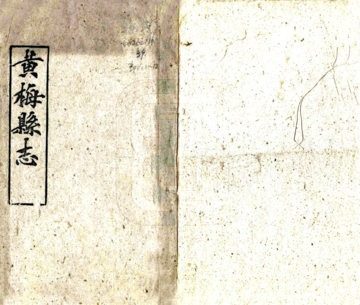 黄梅縣志